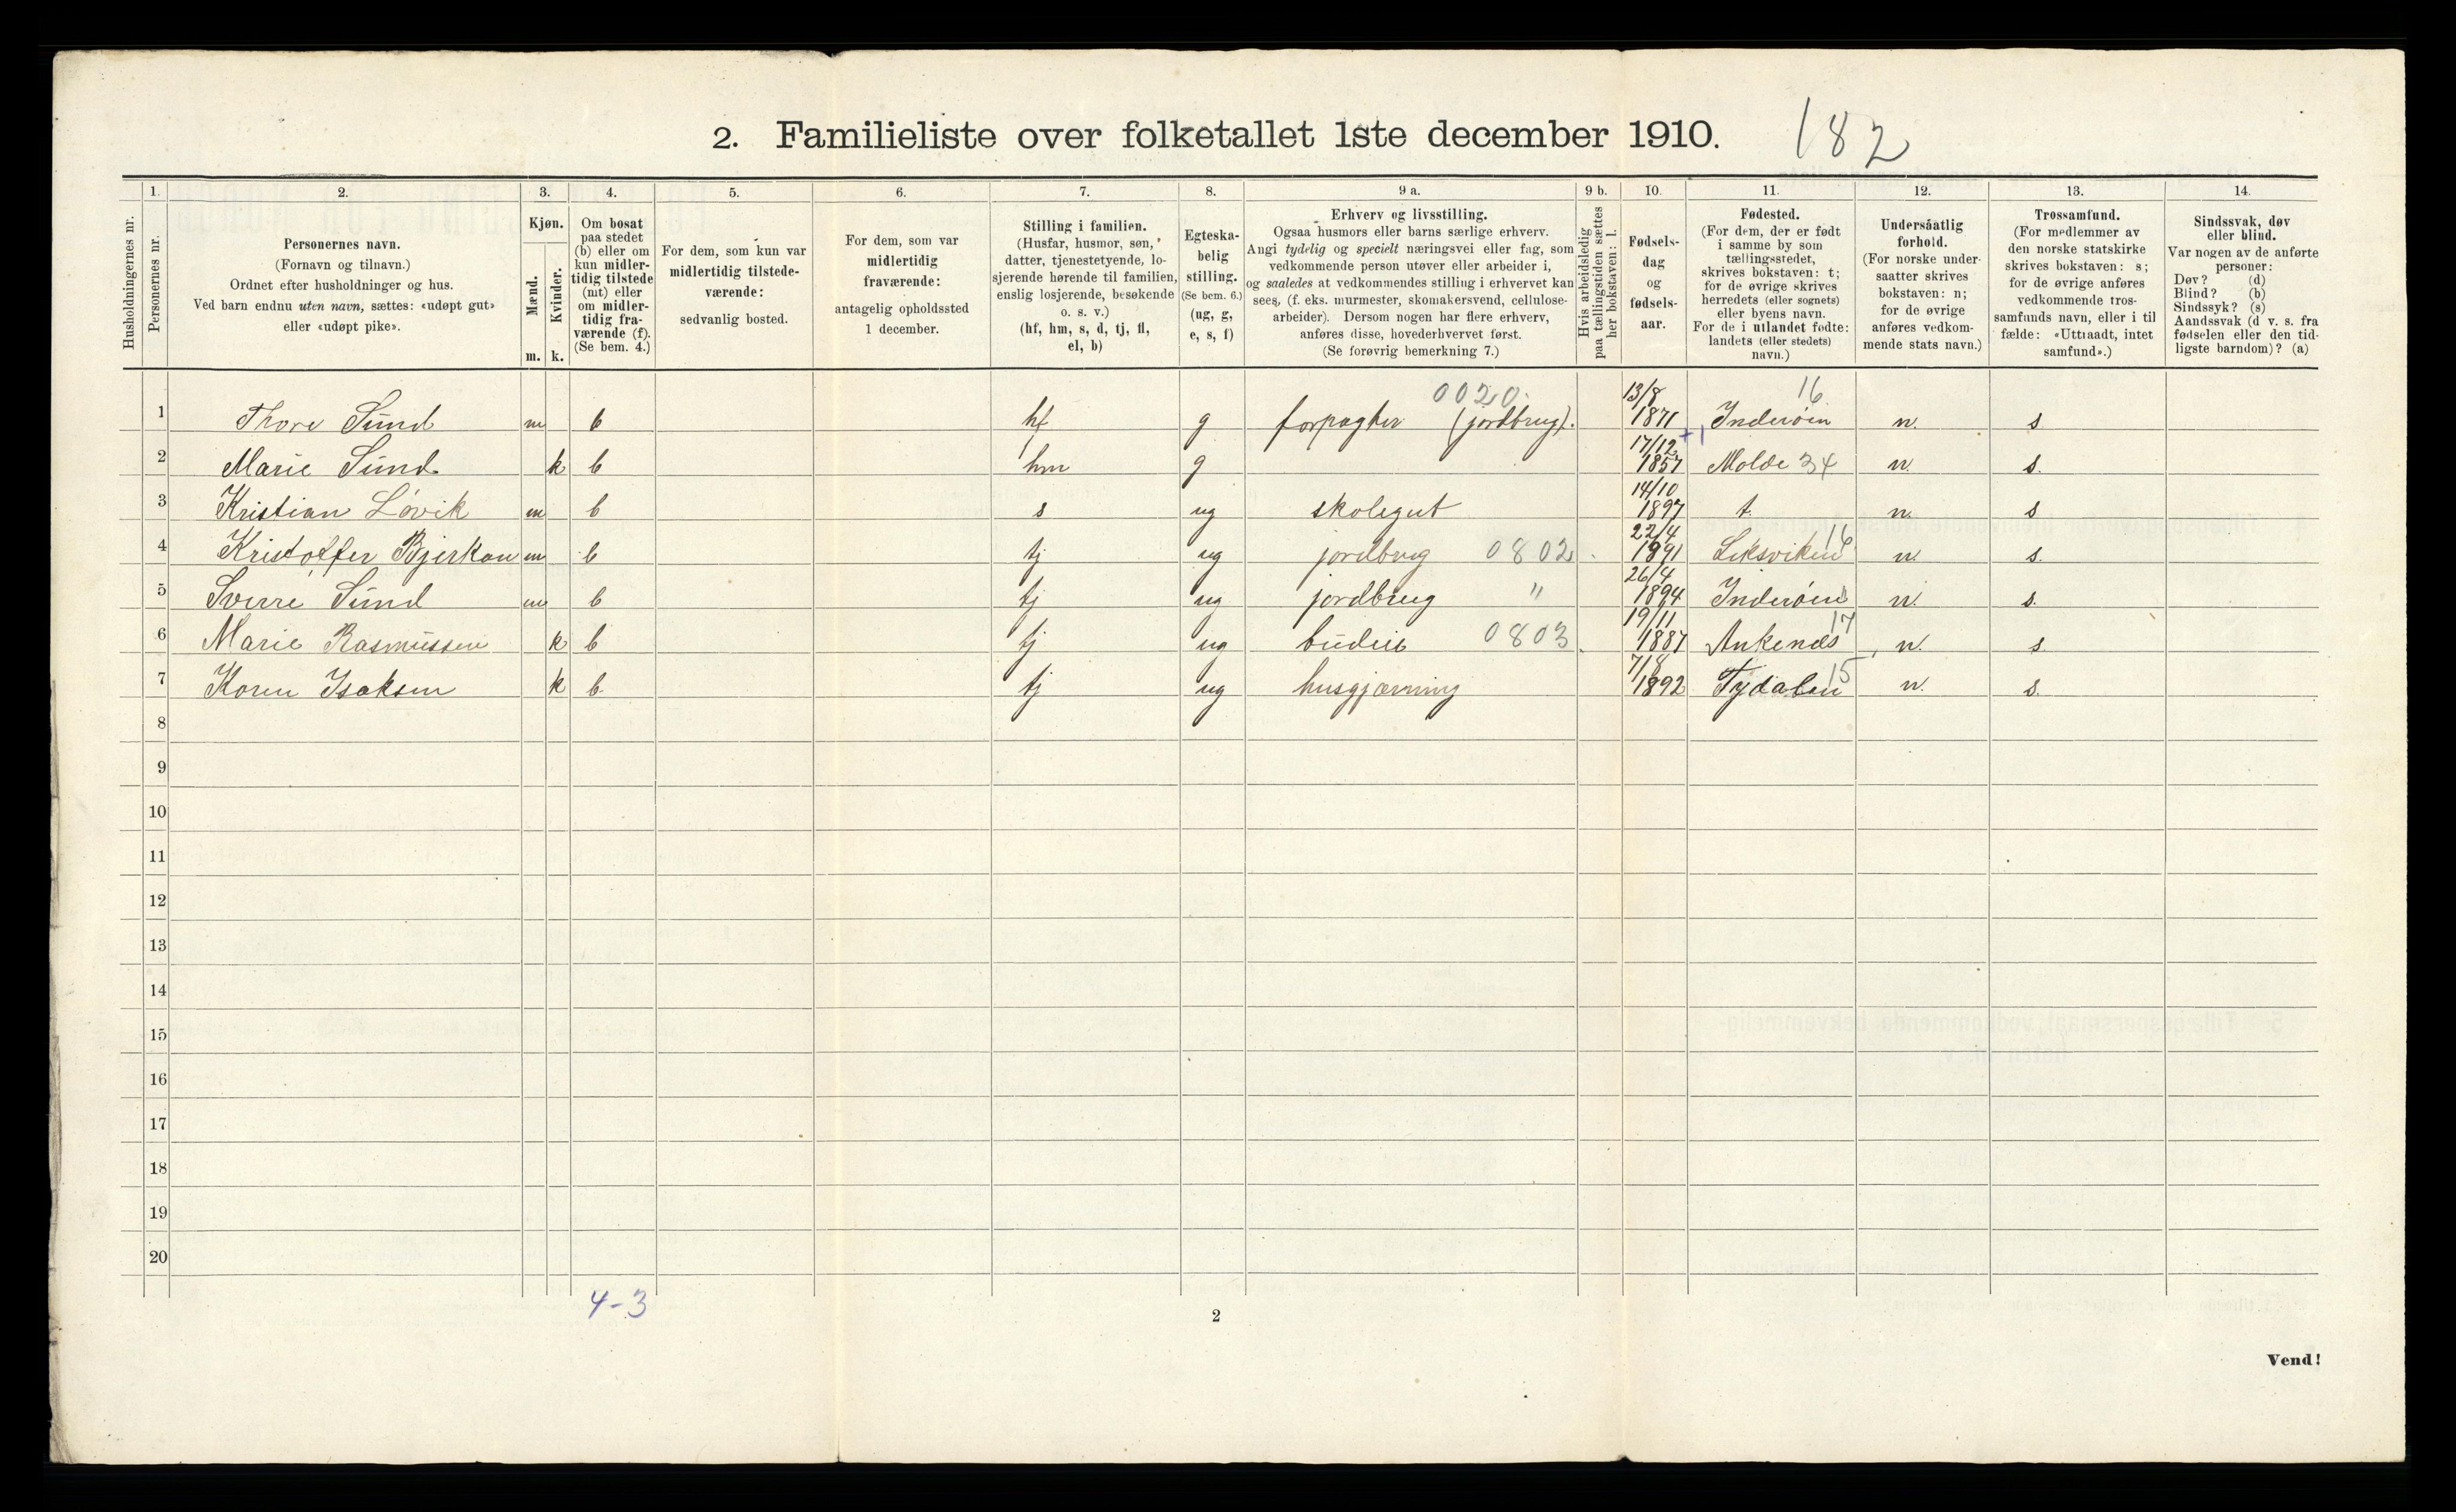 2. Familieliste over folketallet 1ste december 1910. 182
Husholdningernes nr.
1. Personernes nr.
2. Personernes navn.
(Fornavn og tilnavn.)
Ordnet efter husholdninger og hus.
Ved barn endnu uten navn, sættes: «udøpt gut»
eller «udøpt pike».
3. Kjøn.
Mænd. m.
Kvinder. k.
4. Om bosat
paa stedet
(b) eller om
kun midler-
tidig tilstede
(mt) eller
om midler-
tidig fra-
værende (f).
(Se bem. 4.)
5. For dem, som kun var
midlertidig tilstede-
værende:
sedvanlig bosted.
6. For dem, som var
midlertidig
fraværende:
antagelig opholdssted
1 december.
7. Stilling i familien.
(Husfar, husmor, søn,
datter, tjenestetyende, lo-
sjerende hørende til familien,
enslig losjerende, besøkende
o. s. v.)
(hf, hm, s, d, tj, fl,
el, b)
8. Egteska-
belig
stilling.
(Se bem. 6.)
(ug, g,
e, s, f)
9 a. Erhverv og livsstilling.
Ogsaa husmors eller barns særlige erhverv.
Angi tydelig og specielt næringsvei eller fag, som
vedkommende person utøver eller arbeider i,
og saaledes at vedkommendes stilling i erhvervet kan
sees, (f. eks. murmester, skomakersvend, cellulose-
arbeider). Dersom nogen har flere erhverv,
anføres disse, hovederhvervet først.
(Se forøvrig bemerkning 7.)
9 b. Hvis arbeidsledig
paa tællingstiden sættes
her bokstaven: l.
10. Fødsels-
dag
og
fødsels-
aar.
11. Fødested.
(For dem, der er født
i samme by som
tællingsstedet,
skrives bokstaven: t;
for de øvrige skrives
herredets (eller sognets)
eller byens navn.
For de i utlandet fødte:
landets (eller stedets)
navn.)
12. Undersåatlig
forhold.
(For norske under-
saatter skrives
bokstaven: n;
for de øvrige
anføres vedkom-
mende stats navn.)
13. Trossamfund.
(For medlemmer av
den norske statskirke
skrives bokstaven: s;
for de øvrige anføres
vedkommende tros-
samfunds navn, eller i til
fælde: «Uttraadt, intet
samfund».)
14. Sindssvak, døv
eller blind.
Var nogen av de anførte
personer:
Døv? (d)
Blind? (b)
Sindssyk? (s)
Aandssvak (d v. s. fra
fødselen eller den tid-
ligste barndom)? (a)
1 Thore Sund m b hf g forpagter (jordbrug). 0020. 13/8 1871 Inderøen 16 n. s
2 Marie Sund k b hm g 17/12 1857 Molde 34 n. s.
3 Kristian Løvik m b s ug skolegut 14/10 1897 t. n. s
4 Kristoffer Bjerkan m b tj ug jordbrug 0802 22/4 1891 Leksviken 16 n. s.
5 Sverre Sund m b tj ug jordbrug " 26/4 1894 Inderøen n. s.
6 Marie Rasmussen k b tj ug budeie 0803 19/11 1887 Ankenæs 17 n. s.
7 Karen Isaksen k b. tj ug husgjærning 7/8 1892 Tydalen 15 n. s.
8
9
10
11
12
13
14
15
16
17
18
19
20
4-3
2
Vend!